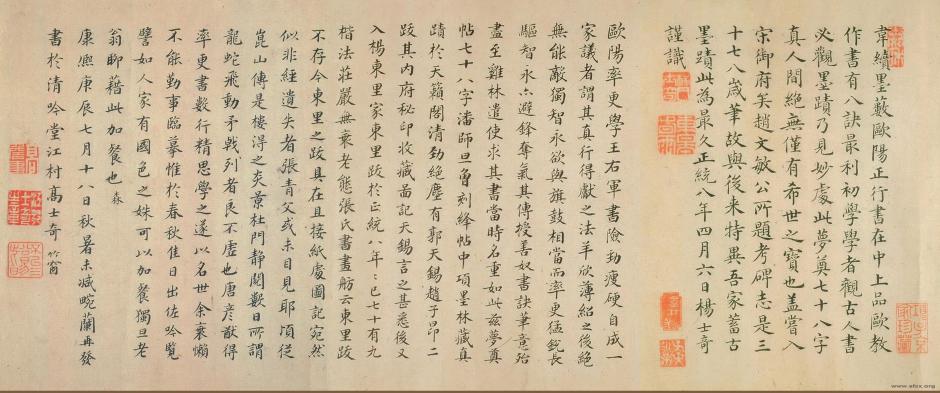 韋續墨藪歐陽正行書在中上品歐教
作書有八訣最利初學學者觀古人書
必觀墨蹟乃見妙處此夢奠七十八字
真人間絕無僅有希世之寶也盖嘗入
宋御府矣趙文敏公所題考碑志是三
十七八歲筆故與後来特異吾家蓄古
墨蹟此為最久正統八年四月六日楊士奇
謹識
歐陽率更學王右軍書險勁瘦硬自成一
家議者謂其真行得獻之法羊欣薄紹之後絕
無能敵獨智永欲與旗鼓相當而率更猛銳長
驅智永亦避鋒奪氣其傳授善奴書訣筆意殆
盡至雞林遣使求其書當時名重如此兹夢奠
帖七十八字潘師旦魯刻絳帖中項墨林藏真
蹟於天籟閣清勁絕塵有郭天錫趙子昂二
跋其内府秘印收藏昷記天錫言之甚悉後又
入楊東里家東里跋於正統八年年已七十有九
楷法莊嚴無衰老態張氏書畫舫云東里跋
不存今東里之跋具在且接紙處圖記宛然
似非經遺失者張青父或未目見耶頃從
崑山傳是樓得之炎景杜門静閱數日所謂
龍蛇飛動矛戟列者良不虛也唐彦猷得
率更書數行精思學之遂以名世余衰懶
不能勤事臨摹惟於春秋佳日出佐吟覽
譬如人家有國色之姝可以加餐獨旦老
翁聊藉此加餐也
康熙庚辰七月十八日秋暑未减畹蘭再發
書於清吟堂江村髙士奇
竹窗
www.efex.org